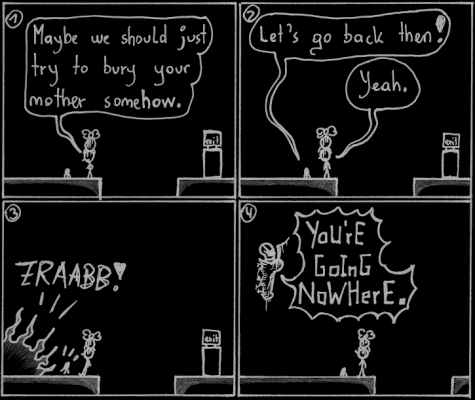 1
Maybe we should just
try to bury your
mother somehow.
exit
2
Let's go back then!
Yeah.
exit
3
ZRAABB!
exit
4
YOU'RE
GOING
NOWHERE.